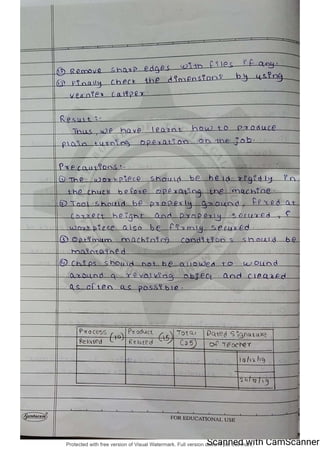 ⑤ Remove sharp edges with files if any.
⑥ Finally check the dimensions by using
vernier caliper
Result :-
Thus, we have learnt how to produce
plain turning operation on the job.
Precautions :-
① The workpiece should be held rigidly in
the chuck before operating the machine.
② Tool should be properly ground, fixed at
correct height and properly secured, &
workpiece also be firmly secured
③ Optimum machining conditions should be
maintained
④ Chips should not be allowed to wound
around a revolving object and cleared
as often as possible.
Process Related (10) Product Related (15) Total (25) Dated Signature of Teacher
Sundaram
FOR EDUCATIONAL USE
Protected with free version of Visual Watermark. Full version
Scanned with CamScanner